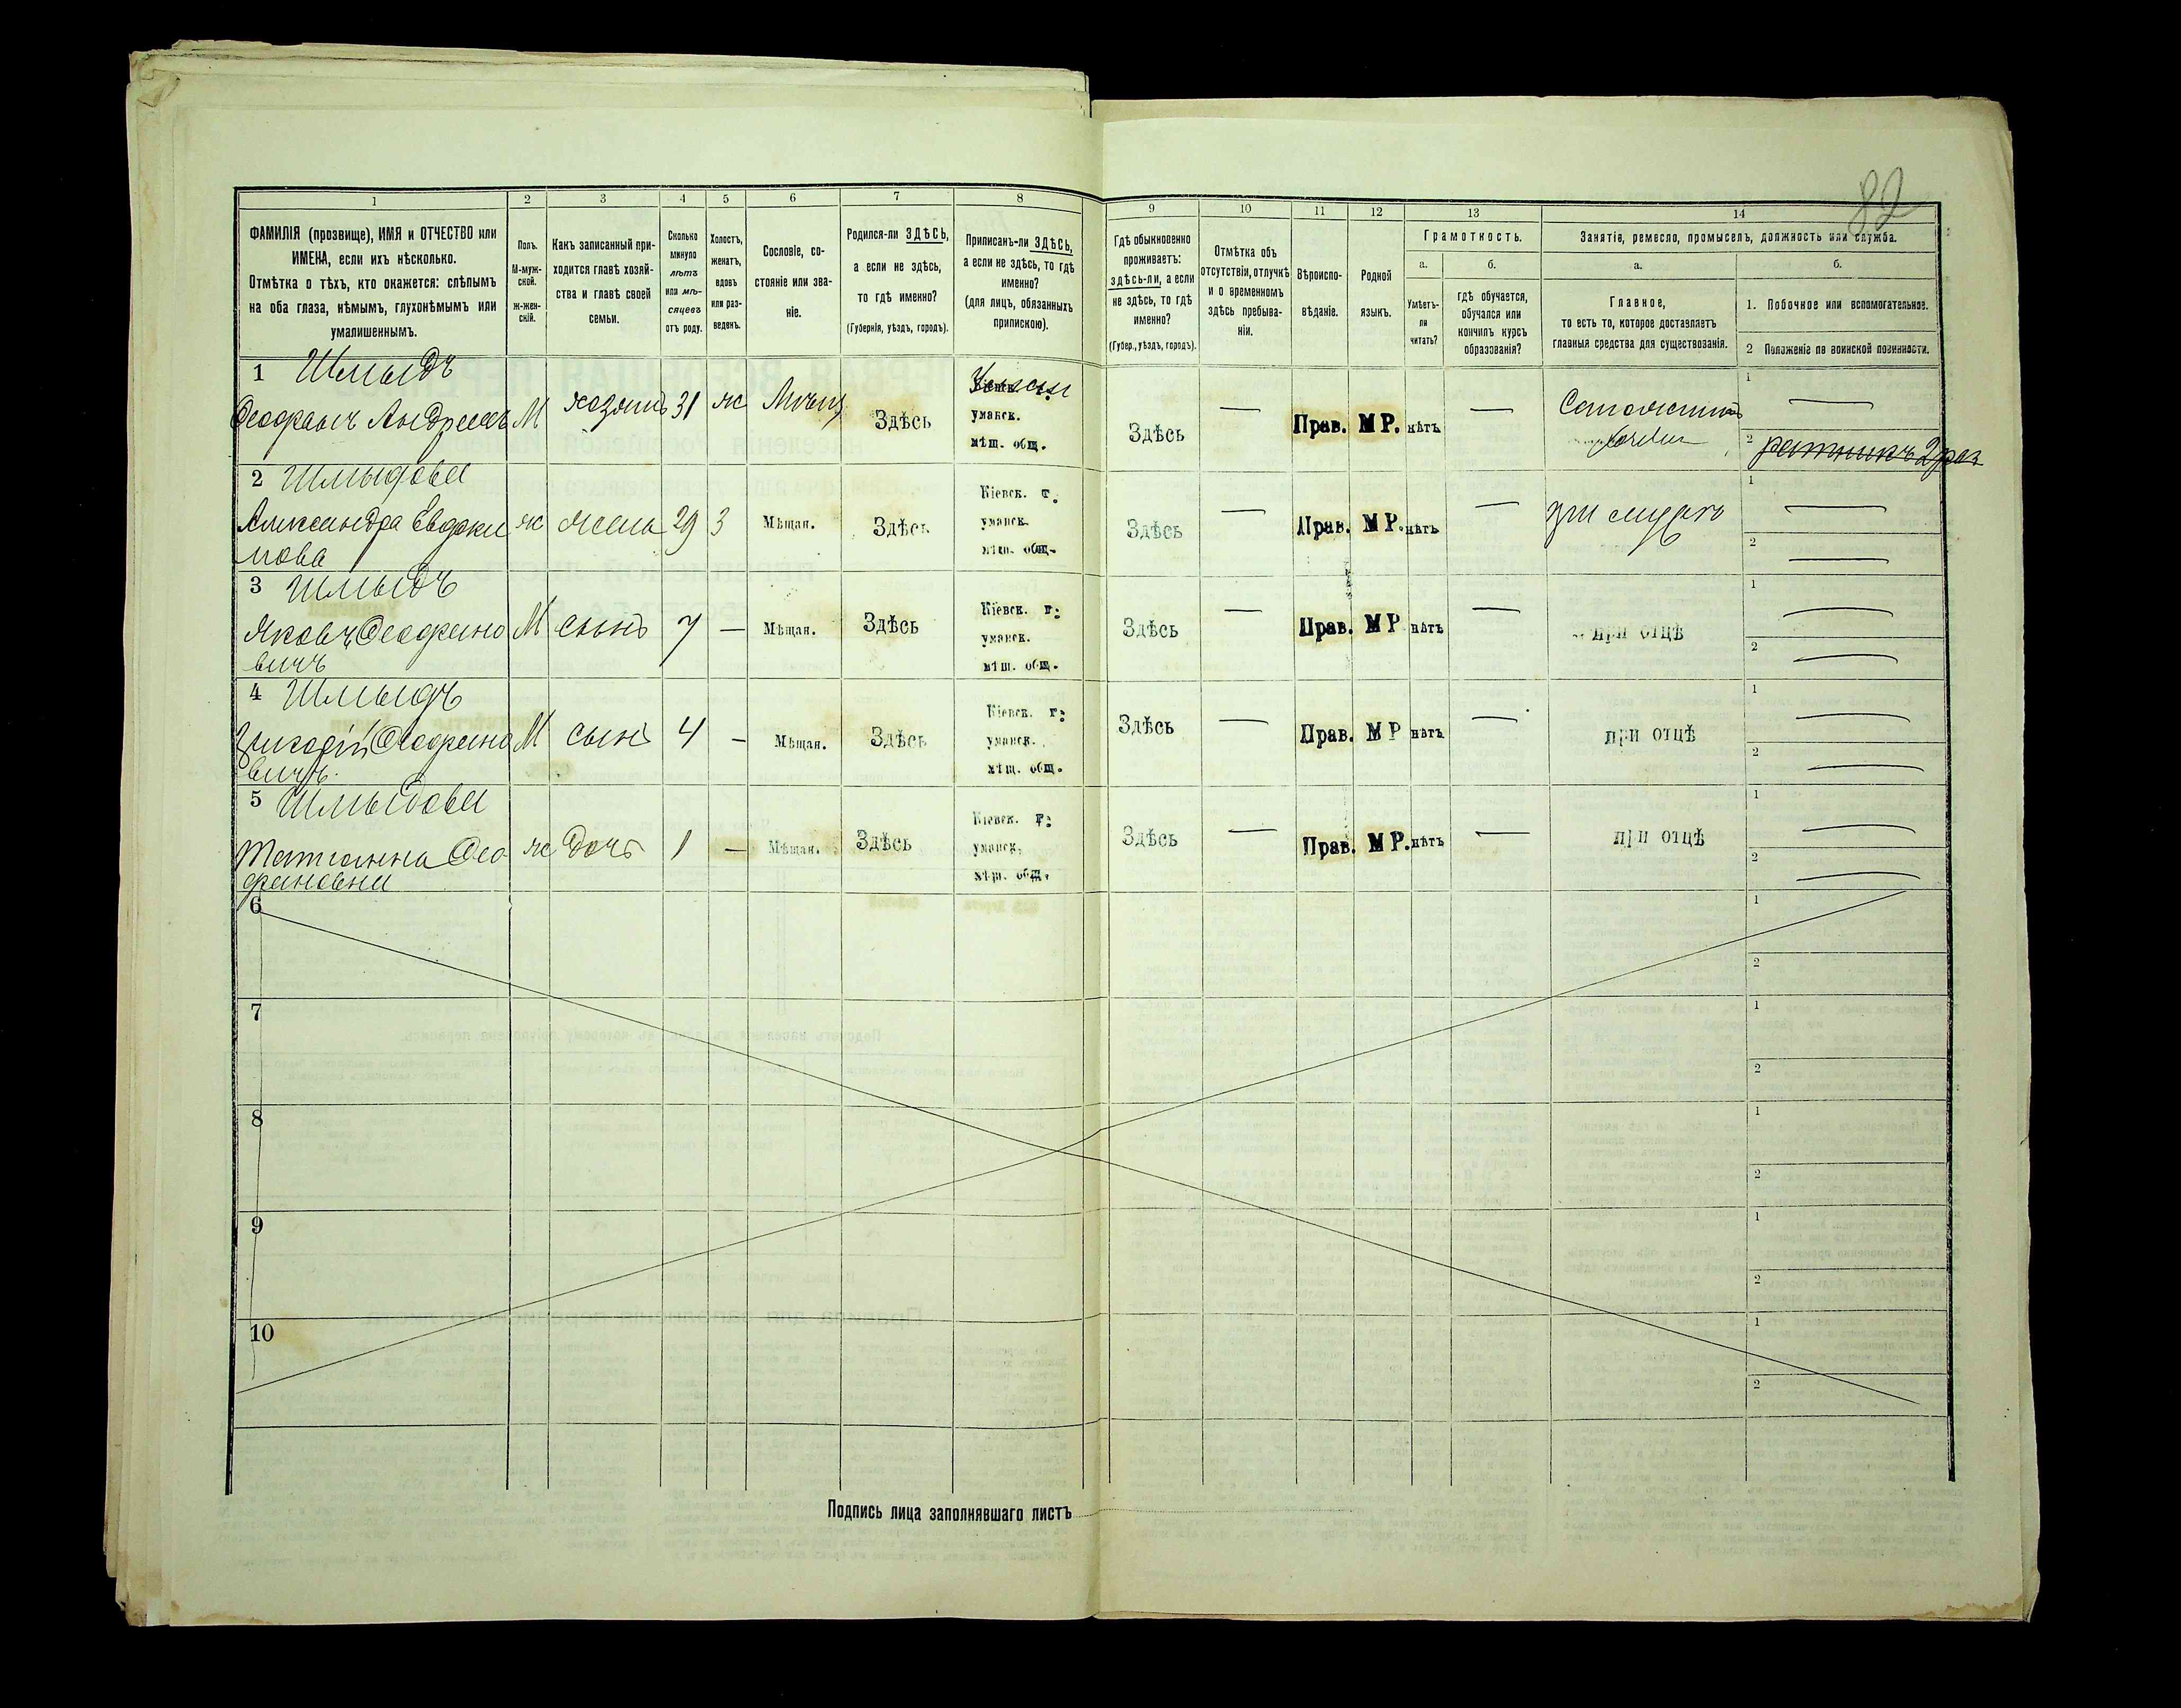 82
1
2
3
4
5
6
7
8
9
10
11
12
13
14
ФАМИЛІЯ (прозвище), ИМЯ и ОТЧЕСТВО или
ИМЕНА, если ихъ нѣсколько.
Отмѣтка о тѣхъ, кто окажется: слѣпымъ
на оба глаза, нѣмымъ, глухонѣмымъ или
умалишеннымъ.
Полъ.
М-муж-
ской.
ж-жен-
скій.
Какъ записанный при-
ходится главѣ хозяй-
ства и главѣ своей
семьи.
Сколько
минуло
лѣтъ
или мѣ-
сяцевъ
отъ роду.
Холостъ,
женатъ,
вдовъ
или раз-
веденъ.
Сословіе, со-
стояніе или зва-
ніе.
Родился-ли ЗДѢСЬ,
а если не здѣсь,
то гдѣ именно?
(Губернія, уѣздъ, городъ).
Приписанъ-ли ЗДѢСЬ,
а если не здѣсь, то гдѣ
именно?
(для лицъ, обязанныхъ
припискою).
Гдѣ обыкновенно
проживаетъ:
здѣсь-ли, а если
не здѣсь, то гдѣ
именно?
(Губер., уѣздъ, городъ).
Отмѣтка объ
отсутствіи, отлучкѣ
и о временномъ
здѣсь пребыва-
ніи.
Вѣроиспо-
вѣданіе.
Родной
языкъ.
Грамотность.
а.
Умѣетъ-
ли
читать?
б.
гдѣ обучается,
обучался или
кончилъ курсъ
образованія?
Занятіе, ремесло, промыселъ, должность или служба.
а.
Главное,
то есть то, которое доставляетъ
главныя средства для существованія.
б.
1. Побочное или вспомогательное.
2 Положеніе по воинской повинности.
1 Шмыдъ
Феофанъ Андреевъ М хозяинъ 31 ж Мѣщ Здѣсь
уманск.
мѣщ. общ.
Здѣсь — Прав. М Р. нѣтъ —
1 —
2 ратникъ 2 раз
2 Шмыдова
Александра Евдоки
мова
ж жена 29 З Мѣщан. Здѣсь
Кіевск. г.
уманск.
мѣщ. общ.
Здѣсь — Прав. М Р. нѣтъ — при мужѣ
1 —
2 —
3 Шмыдъ
Яковъ Феофано
вичъ
М сынъ 7 — Мѣщан. Здѣсь
Кіевск. г.
уманск.
мѣщ. общ.
Здѣсь — Прав. М Р нѣтъ — при отцѣ
1 —
2 —
4 Шмыдъ
Феофано
вичъ
М сынъ 4 — Мѣщан. Здѣсь
Кіевск. г.
уманск.
мѣщ. общ.
Здѣсь — Прав. М Р нѣтъ — при отцѣ
1 —
2 —
5 Шмыдова
Татіанна Фео-
фановна
ж дочь 1 — Мѣщан. Здѣсь
Кіевск. г.
уманск.
мѣщ. общ.
Здѣсь — Прав. М Р. нѣтъ — при отцѣ
1 —
2 —
6
1
2
7
1
2
8
1
2
9
1
2
10
1
2
Подпись лица заполнявшаго листъ